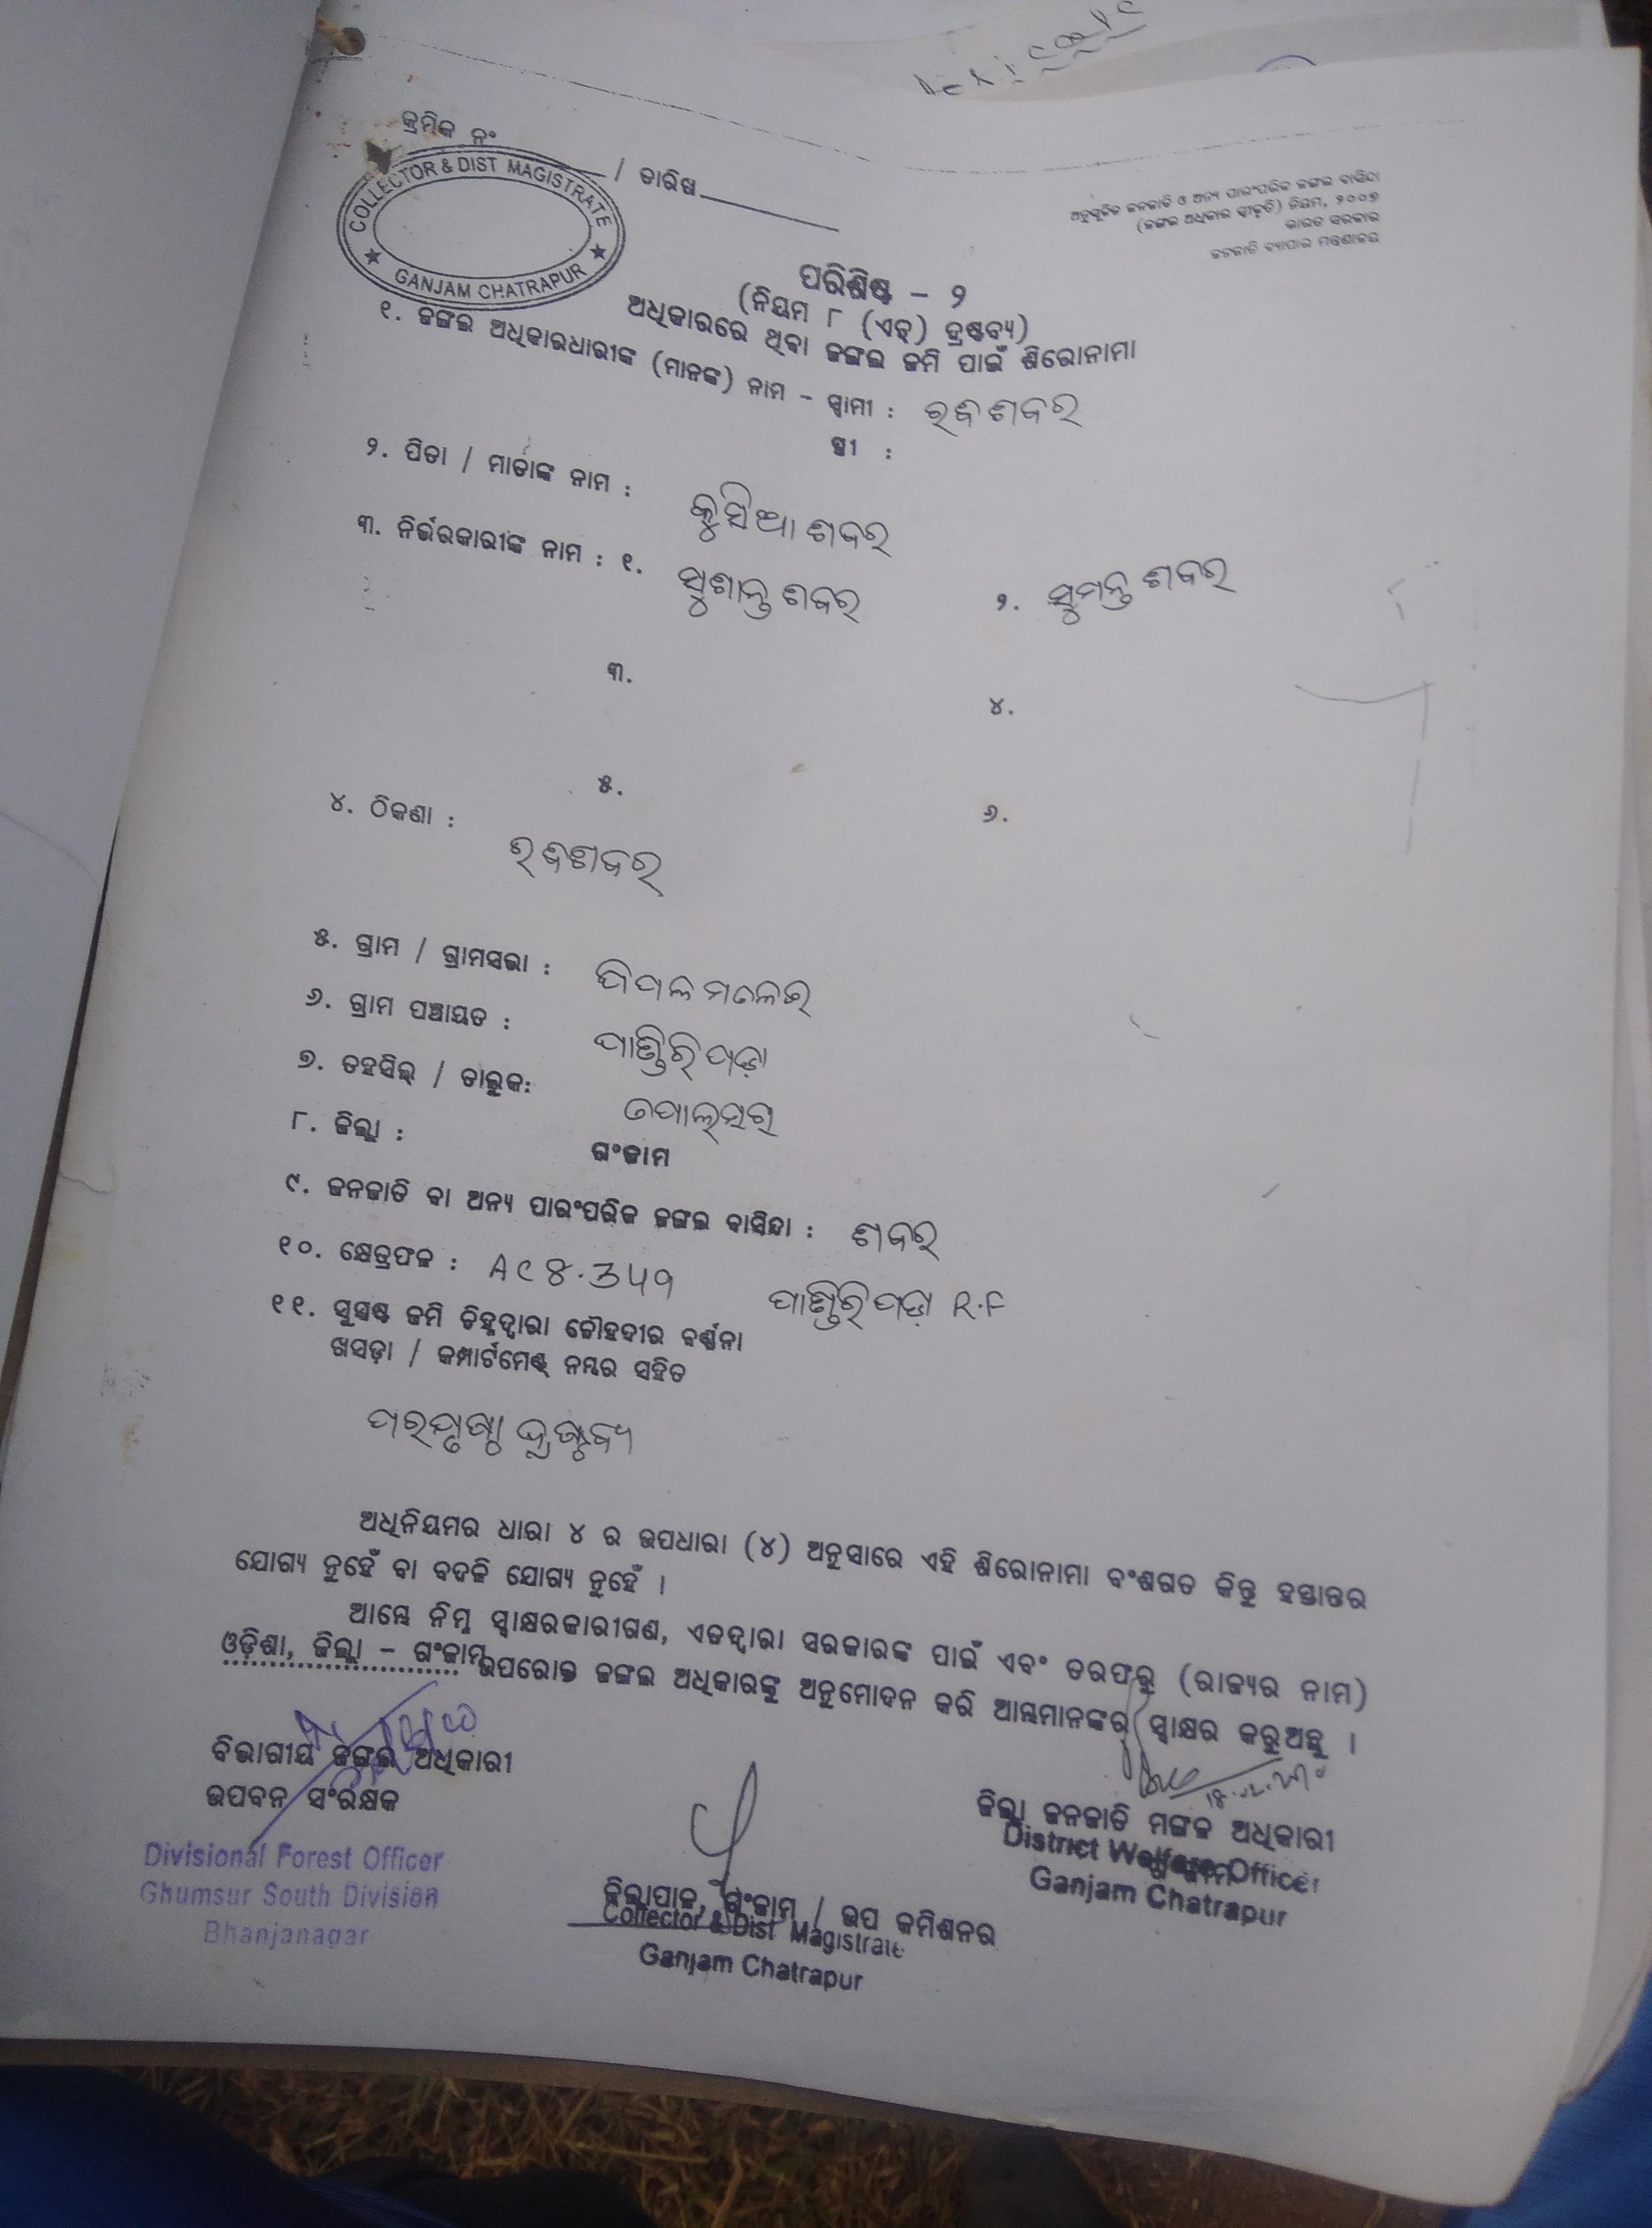 କ୍ରମିକ ନଂ / ତାରିଖ
COLLECTOR & DIST MAGISTRATE
GANJAM CHATRAPUR
ଅନୁସୂଚିତ ଜନଜାତି ଓ ଅନ୍ୟ ପାରଂପରିକ ଜଙ୍ଗଲ ବାସିନ୍ଦା
(ଜଙ୍ଗଲ ଅଧିକାର ସ୍ୱୀକୃତି) ନିୟମ, ୨୦୦୭
ଭାରତ ସରକାର
ଜନଜାତି ବ୍ୟାପାର ମନ୍ତ୍ରଣାଳୟ
ପରିଶିଷ୍ଟ - ୨
(ନିୟମ ୮ (ଏଚ୍) ଦ୍ରଷ୍ଟବ୍ୟ)
ଅଧିକାରରେ ଥିବା ଜଙ୍ଗଲ ଜମି ପାଇଁ ଶିରୋନାମା
୧. ଜଙ୍ଗଲ ଅଧିକାରଧାରୀଙ୍କ (ମାନଙ୍କ) ନାମ - ସ୍ୱାମୀ : ଶବର
ସ୍ତ୍ରୀ :
୨. ପିତା / ମାତାଙ୍କ ନାମ : ଶବର
୩. ନିର୍ଭରକାରୀଙ୍କ ନାମ : ୧. ସୁଶାନ୍ତ ଶବର ୨. ସୁମନ୍ତ ଶବର
୩. ୪.
୫. ୬.
୪. ଠିକଣା : ଶବର
୫. ଗ୍ରାମ / ଗ୍ରାମସଭା :
୬. ଗ୍ରାମ ପଞ୍ଚାୟତ : ପାଣ୍ଡିରିପଡ଼ା
୭. ତହସିଲ୍ / ତାଲୁକ:
୮. ଜିଲ୍ଲା : ଗଂଜାମ
୯. ଜନଜାତି ବା ଅନ୍ୟ ପାରଂପରିକ ଜଙ୍ଗଲ ବାସିନ୍ଦା : ଶବର
୧୦. କ୍ଷେତ୍ରଫଳ : ପାଣ୍ଡିରିପଡ଼ା R.F
୧୧. ସୁସ୍ପଷ୍ଟ ଜମି ଚିହ୍ନଦ୍ୱାରା ଚୌହଦୀର ବର୍ଣ୍ଣନା
ଖସଡ଼ା / କମ୍ପାର୍ଟମେଣ୍ଟ୍ ନମ୍ବର ସହିତ
ପରପୃଷ୍ଠା ଦ୍ରଷ୍ଟବ୍ୟ
ଅଧିନିୟମର ଧାରା ୪ ର ଉପଧାରା (୪) ଅନୁସାରେ ଏହି ଶିରୋନାମା ବଂଶଗତ କିନ୍ତୁ ହସ୍ତାନ୍ତର
ଯୋଗ୍ୟ ନୁହେଁ ବା ବଦଳି ଯୋଗ୍ୟ ନୁହେଁ ।
ଆମ୍ଭେ ନିମ୍ନ ସ୍ୱାକ୍ଷରକାରୀଗଣ, ଏତଦ୍ୱାରା ସରକାରଙ୍କ ପାଇଁ ଏବଂ ତରଫରୁ (ରାଜ୍ୟର ନାମ)
ଓଡ଼ିଶା, ଜିଲ୍ଲା - ଗଂଜାମ ଉପରୋକ୍ତ ଜଙ୍ଗଲ ଅଧିକାରଙ୍କୁ ଅନୁମୋଦନ କରି ଆମ୍ଭମାନଙ୍କର ସ୍ୱାକ୍ଷର କରୁଅଛୁ ।
ବିଭାଗୀୟ ଜଙ୍ଗଲ ଅଧିକାରୀ
ଉପବନ ସଂରକ୍ଷକ
Divisional Forest Officer
Ghumsur South Division
Bhanjanagar
ଜିଲ୍ଲାପାଳ, ଗଂଜାମ / ଉପ କମିଶନର
Collector & Dist Magistrate
Ganjam Chatrapur
ଜିଲ୍ଲା ଜନଜାତି ମଙ୍ଗଳ ଅଧିକାରୀ
District Welfare Officer
Ganjam Chatrapur